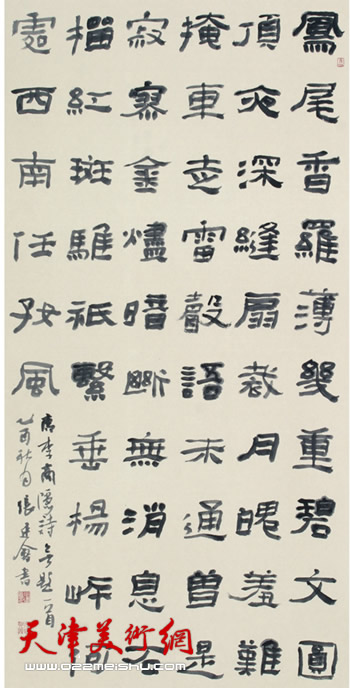 鳳尾香羅薄幾重碧文圓
頂夜深縫扇裁月魄羞難
掩車走雷聲語未通曾是
寂寥金燼暗斷無消息石
榴紅斑騅祇繫垂楊岸何
處西南任好風
唐李商隱詩無題一首
乙酉秋月張建會書
天津美術網
www.022meishu.com